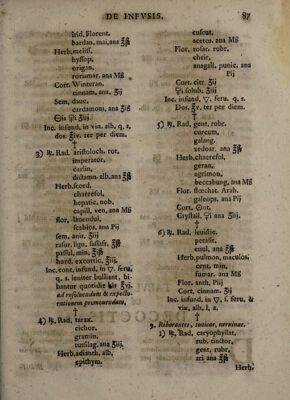 DE INFUSIS. 87
irid. Florent.
bardan. mai, ana ℥ß
Herb. meliss.
hyssop.
origan.
rorismar. ana Mß
Cort. Winteran.
cinnam. ana. ʒij
Sem. dauc.
cardamom. ana ʒiß
Inc. infund. in vin. alb, q. s,
dos. ℥iv. ter per diem.
†
3) ℞. Rad. aristoloch. rot.
imperator.
carlin,
dictamn. alb. ana ℥ß
Herb. scord.
chaerefol.
hepatic. nob.
capill. ven, ana Mß
flor. lavendul,
scabios. ana Pij
sem. anis. ʒiij
rasur. lign. sassafr. ℥ß
passul, min. ℥iß
hord. excortic. ℥iij.
Inc. cont. infund. in ▽. ferv.
q. s. leniter bulliant, bi-
bantur quotidie ℔ ℥vj.
ad resolvendum & expecto-
rationem promovendam.
†
4) ℞. Rad. tarax.
cichor.
gramin.
tussilag. ana ℥iij.
Herb. adianth. alb,
epithym.
cuscut.
acetos. ana Mß
Flor. rosar. rubr.
cheir.
anagall. punic. ana
Pij
Cort. citr. ʒij
solub. ʒiij
Inc. infund. ▽. ferv. q. s.
Dos. ℥v. ter per diem.
†
5) ℞. Rad. gent. rubr.
curcum.
galang.
zedoar. ana ℥ß
Herb. chaerefol,
geran.
agrimon,
beccabung, ana Mß
Flor. stoechat. Arab.
galeops. ana Pij
Cort.
Crystall.
†
6) ℞. Rad. levistic.
petasit.
enul, ana ℥ß
Herb. pulmon. maculos,
cent. min,
fumar. ana Mß
Flor. anth. Piij
Cort. cinnam. ʒij
Inc. infund. in ▽, f. ferv. &
vin. alb, l. a,
†
9. Roborantes, tonicae, nervinae.
1) ℞. Rad. caryophyllat.
rub. tinctor,
gent. rubr,
ari ana ℥ß
Herb.